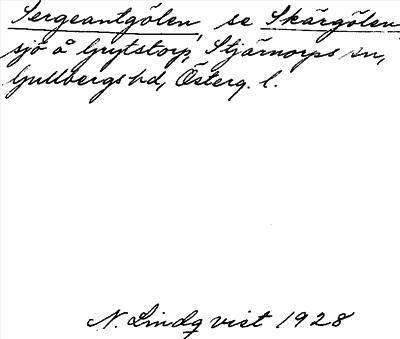 Sergeantgölen, se Skärgölen
sjö å Grytstorp, Stjärnorps sn,
Gullbergs hd, Österg. l.
N. Lindqvist 1928